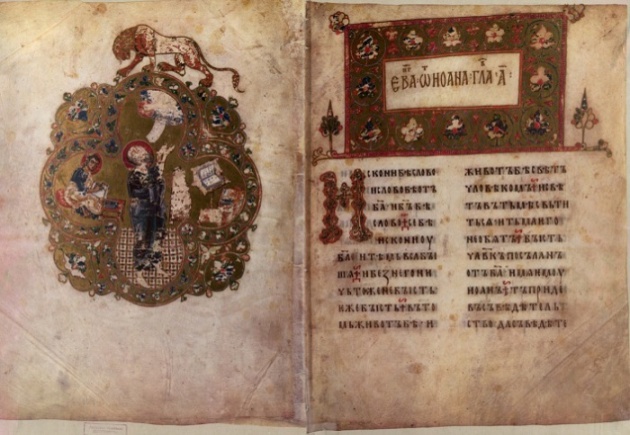 ЕВА·ѠИОАНА·ГЛА·А҃:
ИСКОНИБѢСЛОВО
ИСЛОВОБѢОТЪ
Б҃А·ИБ҃ЪБѢ
СЛОВО·СЕБѢ
ИСКОНИОУ
Б҃А·ИТѢМЬВЬСѦБЫ
ША·ИБЕЖНЕГОНИ
ЧЬТОЖЕНЕБЫСТЬ·
ѤЖЕБЫСТЬ·ВЪТО
МЬЖИВОТЪБѢ·И
ЖИВОТЪБѢСВѢТЪ
ЧЛОВѢКОМЪ·ИСВѢ
ТЪВЪТЬМѢСВЬТИ
ТЬСѦ·ИТЬМАѤГО
НЕОБѦТЪ·БЫСТЪ
ЧЛ҃ВКЪПОСЪЛАНЪ
ОТЪБ҃А·ИМѦѤМОУ
ИОАНЪ·ТЪПРИДЕ
ВЪСЪВѢДѢТЕЛЬ
СТВО·ДАСЪВѢДѢТЕ